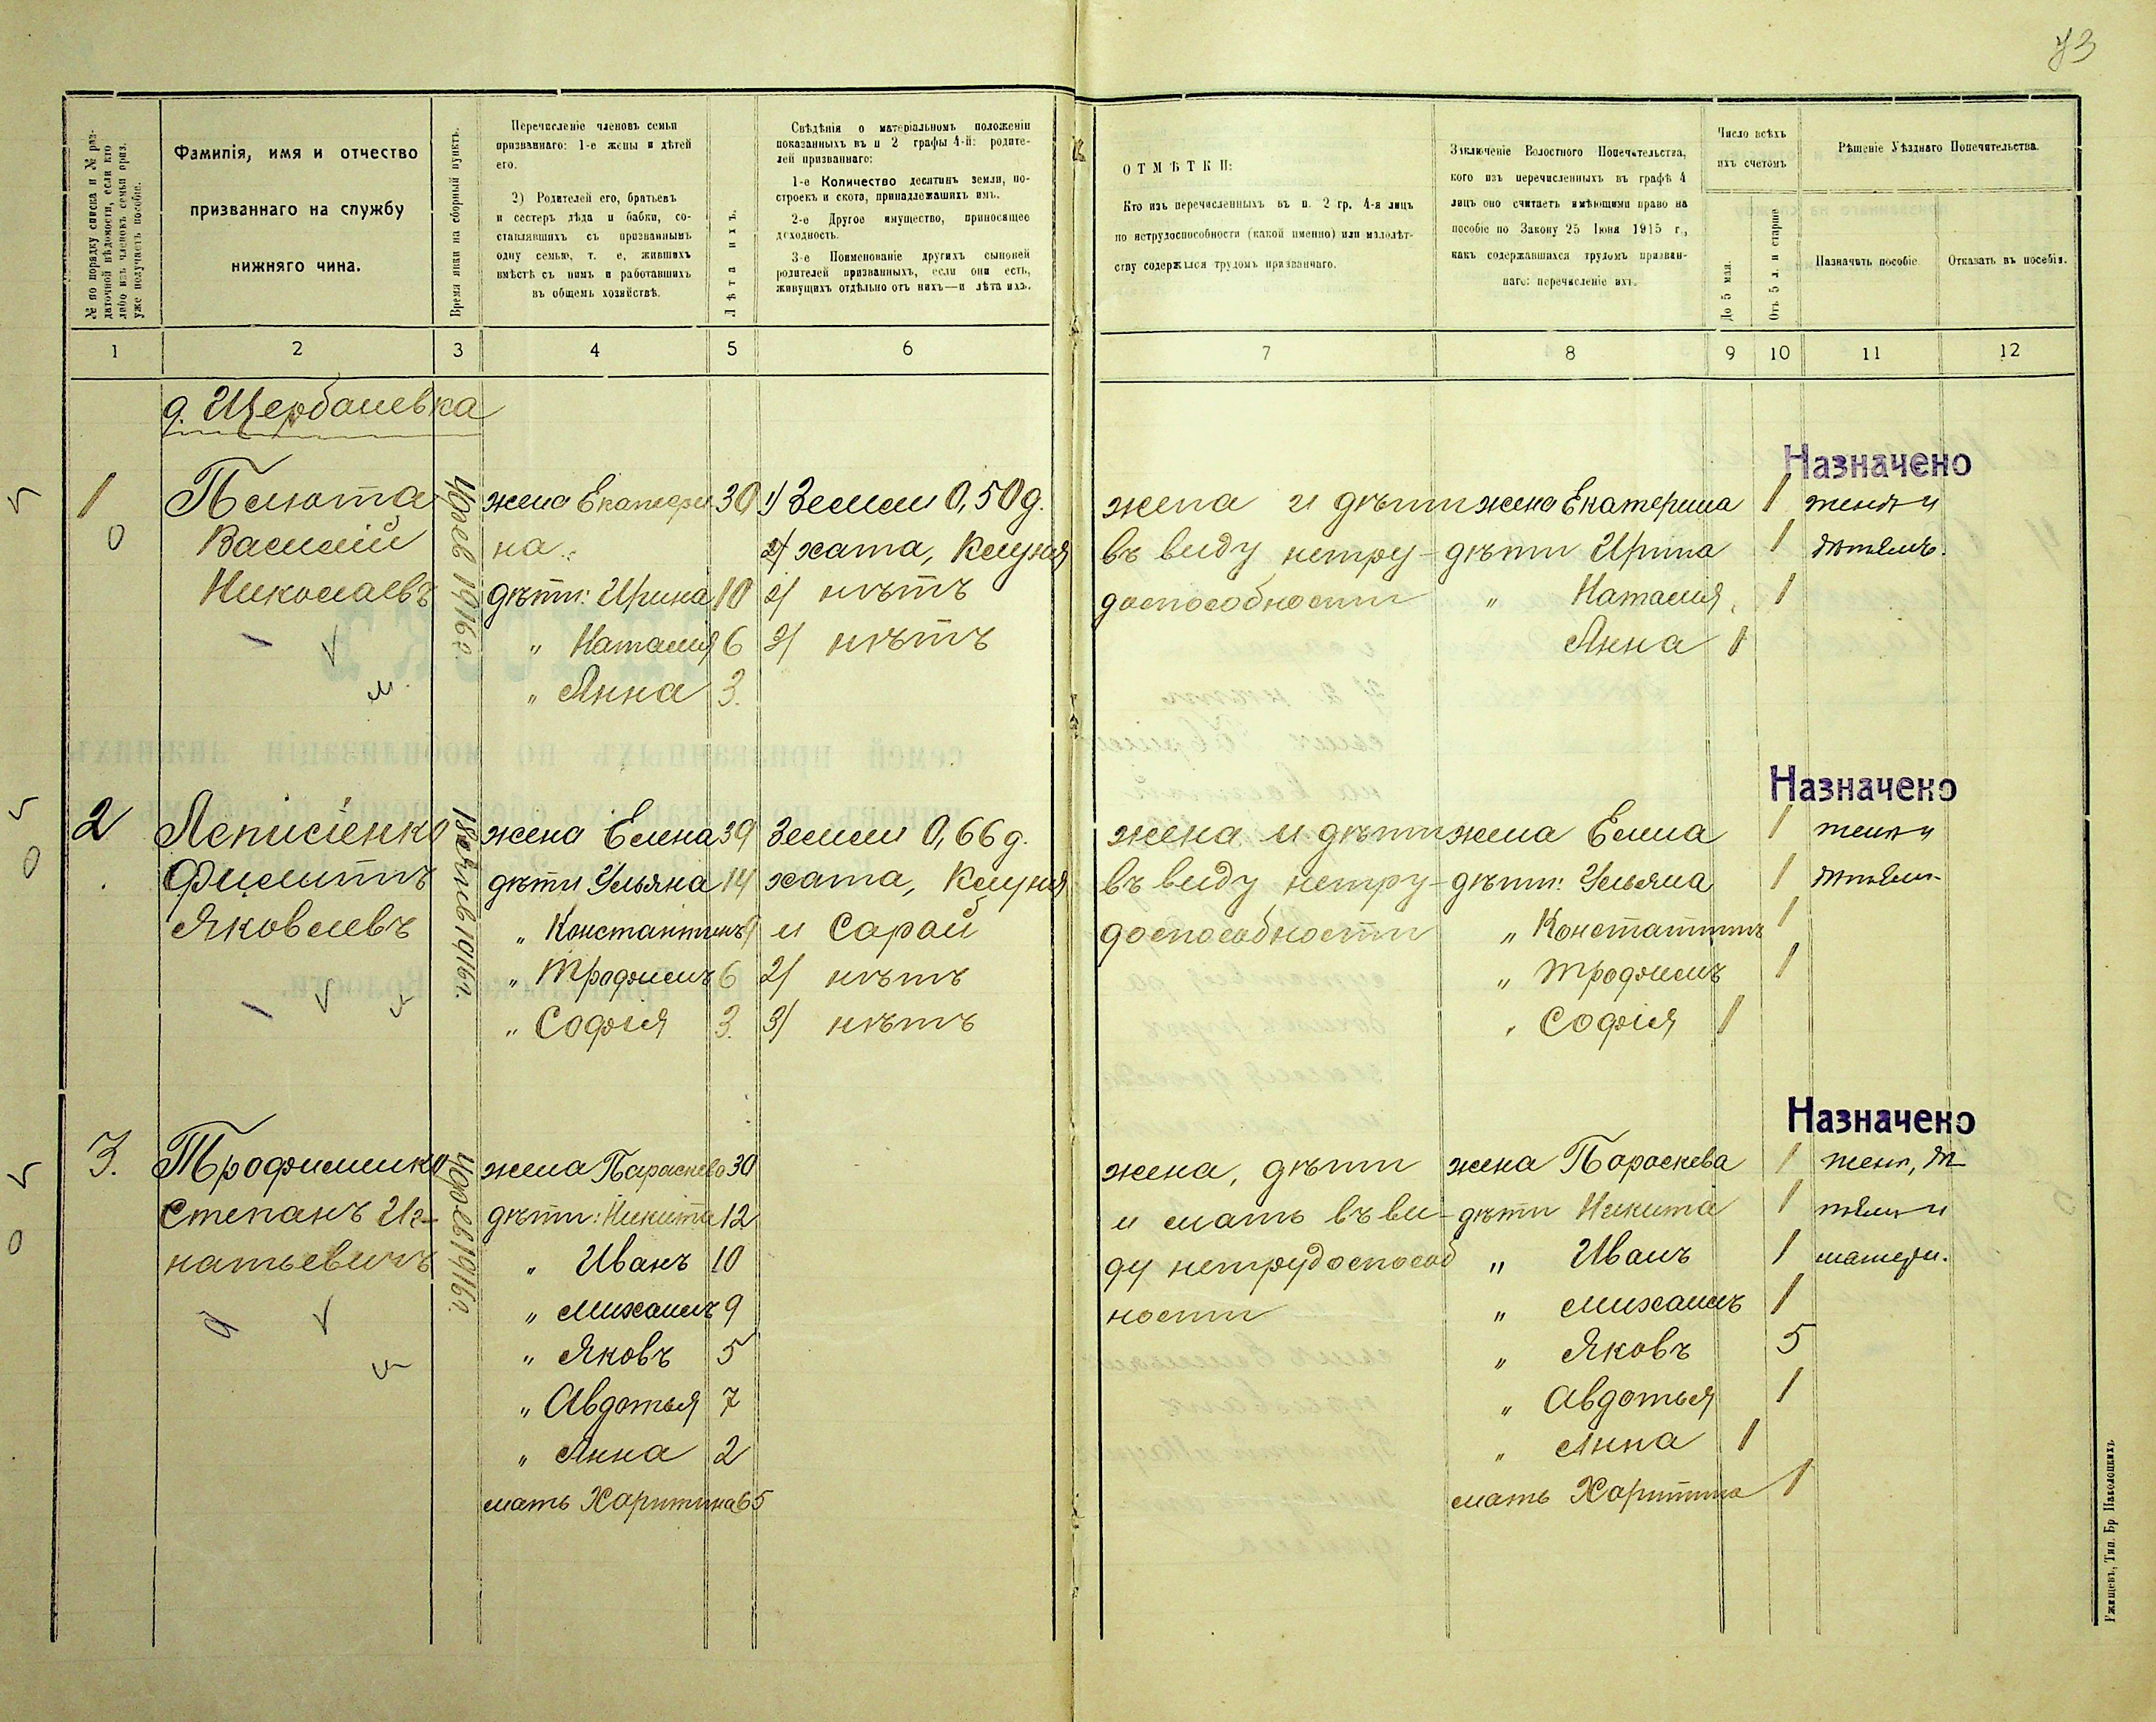 73
№ по порядку списка и № раз-
даточной вѣдомости, если кто
либо изъ членовъ семьи приз.
уже получаетъ пособіе.
Фамилія, имя и отчество
призваннаго на службу
нижняго чина.
Время явки на сборный пунктъ.
Перечисленіе членовъ семьи
призваннаго: 1-е жены и дѣтей
его.
2) Родителей его, братьевъ
и сестеръ дѣда и бабки, со-
ставлявшихъ съ призваннымъ
одну семью, т. е, жившихъ
вмѣстѣ съ нимъ и работавшихъ
въ общемъ хозяйствѣ.
Лѣта ихъ.
Свѣдѣнія о матеріальномъ положеніи
показанныхъ въ п 2 графы 4-й: родите-
лей призваннаго:
1-е Количество десятинъ земли, по-
строекъ и скота, принадлежащихъ имъ.
2-е Другое имущество, приносящее
доходность.
3-е Поименованіе другихъ сыновей
родителей призванныхъ, если они есть,
живущихъ отдѣльно отъ нихъ—и лѣта ихъ.
ОТМѢТКИ:
Кто изъ перечисленныхъ въ п. 2 гр. 4-я лицъ
по нетрудоспособности (какой именно) или малолѣт-
ству содержался трудомъ призваннаго.
Заключеніе Волостного Попечительства,
кого изъ перечисленныхъ въ графѣ 4
лицъ оно считаетъ имѣющими право на
пособіе по Закону 25 Іюня 1915 г.,
какъ содержавшихся трудомъ призван-
наго: перечисленіе ихъ.
Число всѣхъ
ихъ счетомъ
До 5 мая.
Отъ 5 л. и старше
Рѣшеніе Уѣзднаго Попечительства.
Назначить пособіе.
Отказать въ пособіи.
1 2 3 4 5 6 7 8 9 10 11 12
д. Щербаневка
Назначено
1 Пелюта жена Екатери 30 1) Земли 0,50 д. жена и дѣти жена Екатерина 1 женѣ и
0 Василій на: хата, Клуня въ виду нетру- дѣти Ирина 1 дѣтямъ.
Николаевъ дѣти: Ирина 10 2) нѣтъ доспособности " Наталія 1
" Наталия 6 3) нѣтъ Анна 1
" Анна 3.
Назначено
2 жена Елена 39 Земли 0,66 д. жена и дѣти жена Елена 1 женѣ и
0 Филиппъ дѣти Ульяна 14 хата, Клуня въ виду нетру- дѣти: Ульяна 1 дѣтям
Яковлевъ " Константинъ 9 и Сарай доспособности " Константинъ 1
" Трофимъ 6 2) нѣтъ " Трофимъ 1
" Софія 3. 3) нѣтъ " Софія 1
Назначено
3. Трофименко жена Параскева 30 жена, дѣти жена Параскева 1 женѣ, дѣ
Степанъ Иг- дѣти: Никита 12 и мать въ ви- дѣти Никита 1 тям и
0 натьевичъ " Иванъ 10 ду нетрудоспособ " Иванъ 1 матери.
" Михаилъ 9 ности " Михаилъ 1
" Яковъ 5 " Яковъ 5
" Авдотья 7 " Авдотья 1
" Анна 2 " Анна 1
мать Харитина 65 мать Харитина 1
Ржищевъ, Тип. Бр